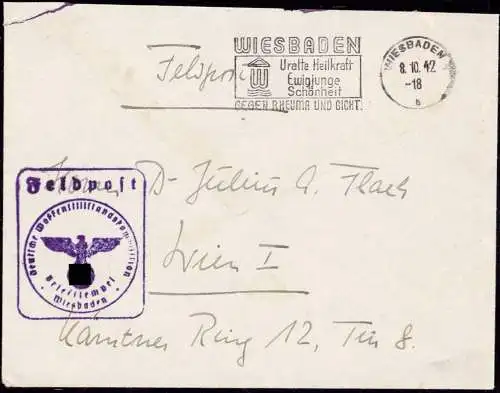 WIESBADEN
Uralte Heilkraft
Ewigjunge
Schönheit
GEGEN RHEUMA UND GICHT.
WIESBADEN
8.10.42
-18
b
Feldpost
Feldpost
Deutsche Waffenstillstandskommission
Briefstempel
· Wiesbaden ·
Herrn Dr Julius A. Flach
Wien I
Kärntner Ring 12, Tür 8.